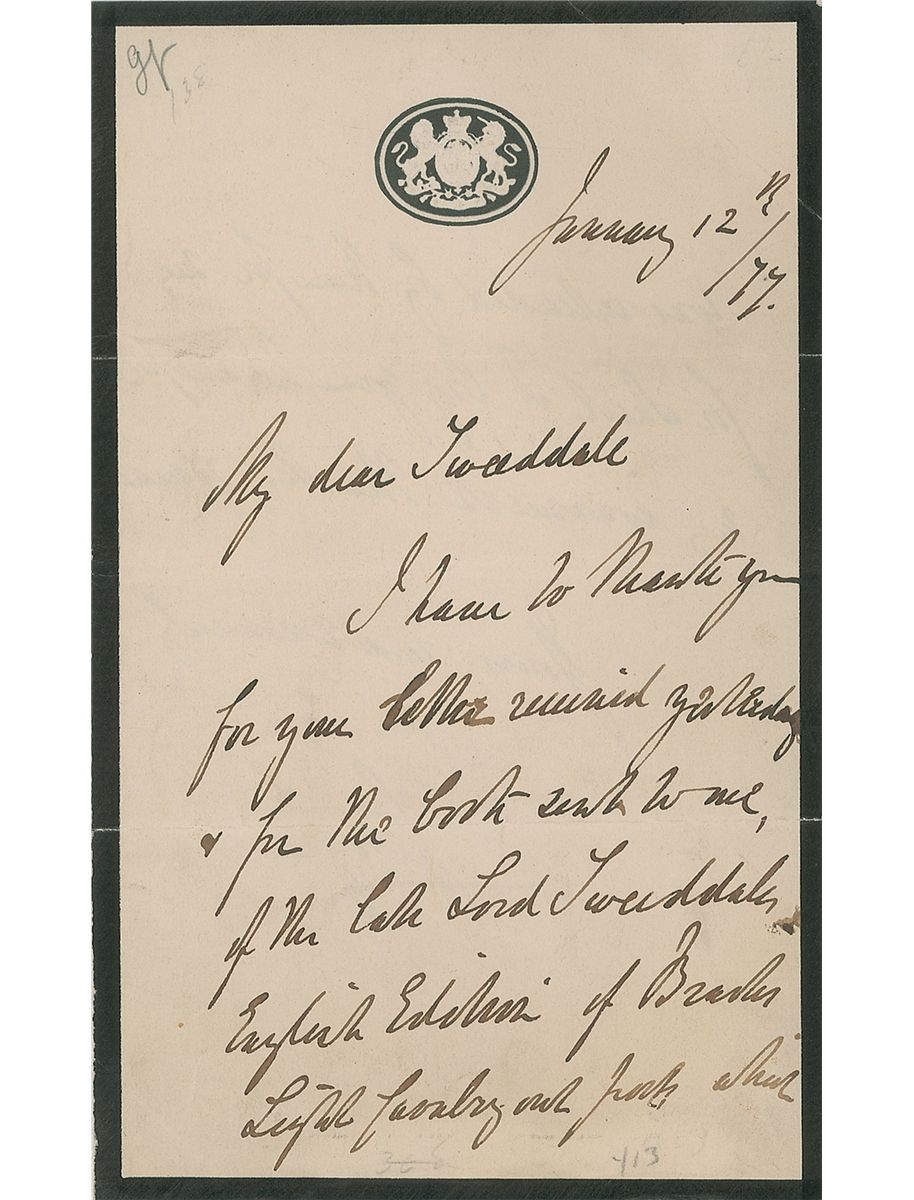 January 12th
/77.
My dear Tweeddale
I have to thank you
for your letter received yesterday
& for the book sent to me,
of the late Lord Tweeddales
English Edition of Bracks
Light Cavalry out posts, which
413